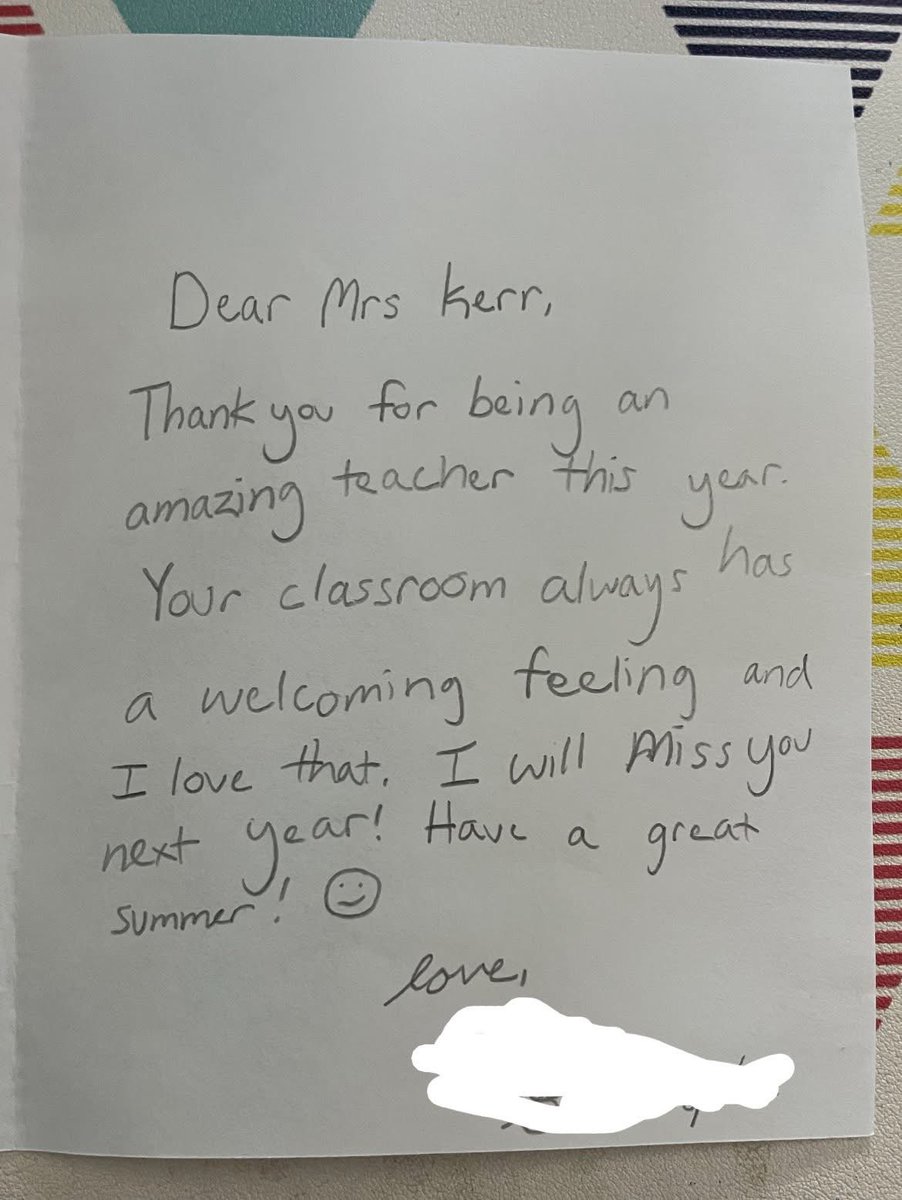 Dear Mrs Kerr,
Thank you for being an
amazing teacher this year.
Your classroom always has
a welcoming feeling and
I love that. I will Miss you
next year! Have a great
summer! ☺
love,